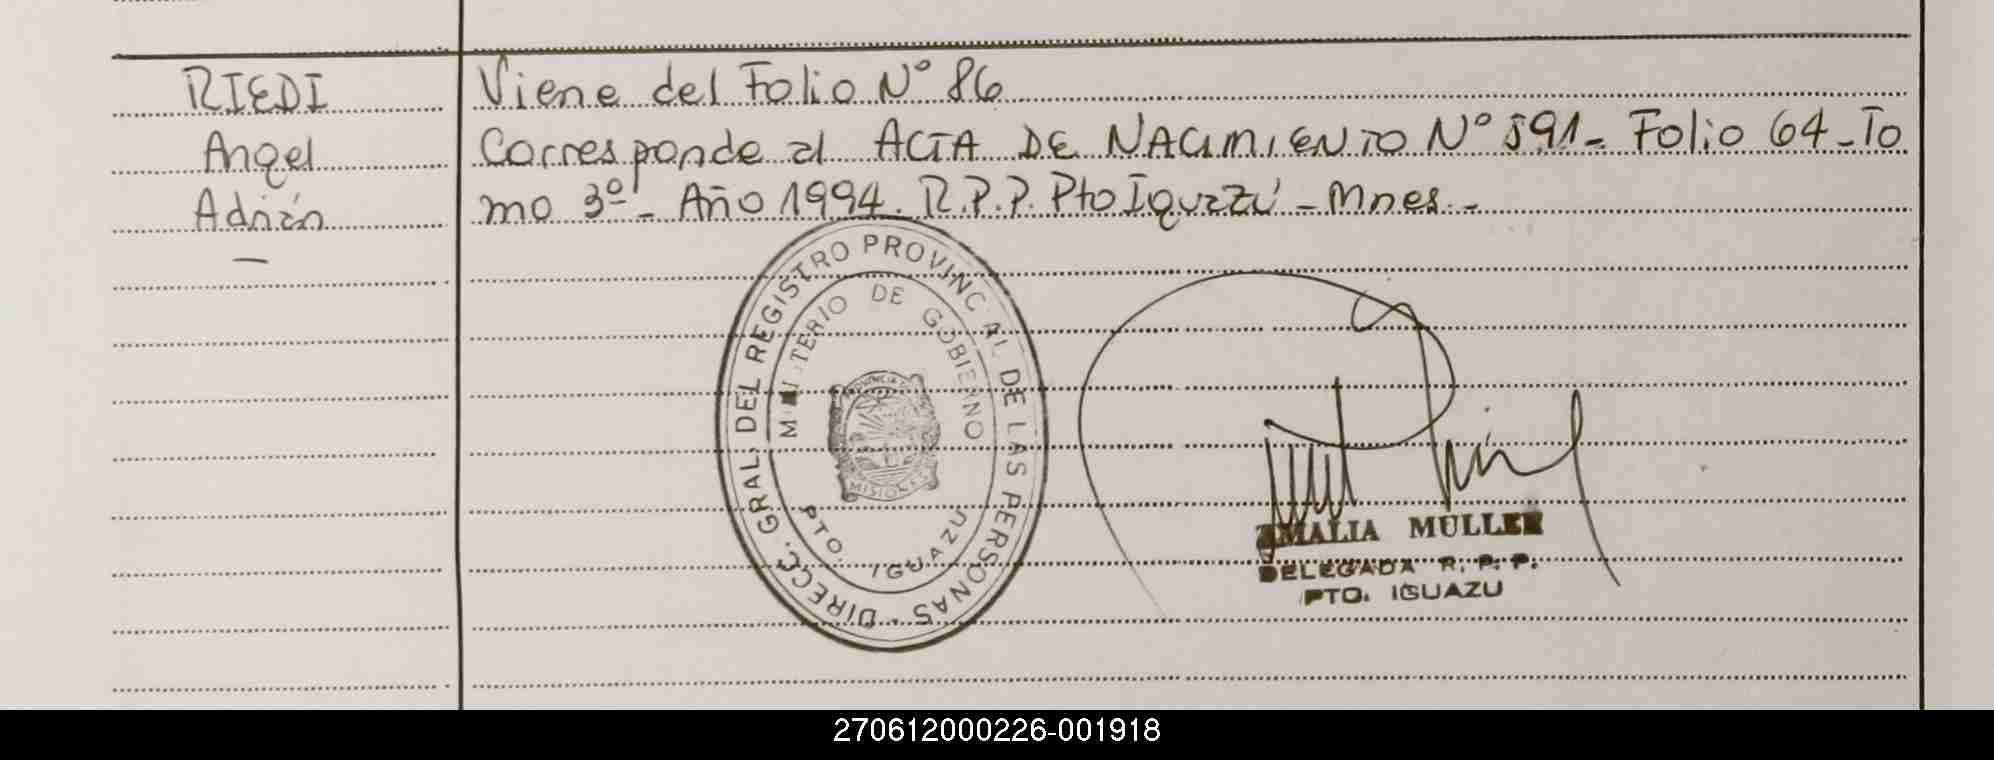 RIEDI
Angel
Adrián
—
Viene del Folio N° 86
Corresponde al ACTA DE NACIMIENTO N° 591- Folio 64-To
mo 3º- Año 1994. R.P.P. Pto Iguazú - Mnes.-
DIRECC. GRAL. DEL REGISTRO PROVINCIAL DE LAS PERSONAS -
MINISTERIO DE GOBIERNO
PROVINCIA DE
MISIONES
PTO. IGUAZU
AMALIA MULLER
DELEGADA R. P. P.
PTO. IGUAZU
270612000226-001918